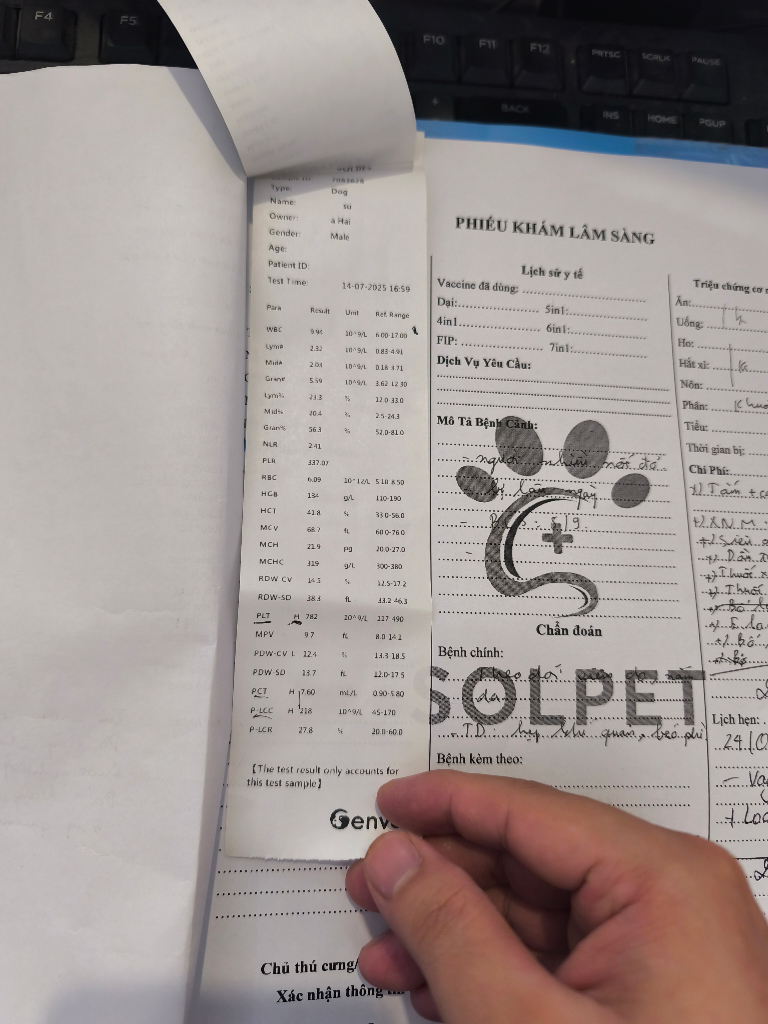 F4
F5
F10
F11
F12
PRTSC
SCRLK
PAUSE
BACK
INS
HOME
PGUP
Type: Dog
Name: su
Owner: a Hai
Gender: Male
Age:
Patient ID:
Test Time: 14-07-2025 16:59
Para Result Unit Ref. Range
WBC 9.94 10^9/L 6.00-17.00
Lym# 2.32 10^9/L 0.83-4.91
Mid# 2.03 10^9/L 0.18-3.71
Gran# 5.59 10^9/L 3.62-12.30
Lym% 23.3 % 12.0-33.0
Mid% 20.4 % 2.5-24.3
Gran% 56.3 % 52.0-81.0
NLR 2.41
PLR 337.07
RBC 6.09 10^12/L 5.10-8.50
HGB 134 g/L 110-190
HCT 41.8 % 33.0-56.0
MCV 68.7 fL 60.0-76.0
MCH 21.9 pg 20.0-27.0
MCHC 319 g/L 300-380
RDW-CV 14.5 % 12.5-17.2
RDW-SD 38.3 fL 33.2-46.3
PLT H 782 10^9/L 117-490
MPV 9.7 fL 8.0-14.1
PDW-CV L 12.4 % 13.3-18.5
PDW-SD 13.7 fL 12.0-17.5
PCT H 7.60 mL/L 0.90-5.80
P-LCC H 218 10^9/L 45-170
P-LCR 27.8 % 20.0-60.0
【The test result only accounts for
this test sample】
Genv
PHIẾU KHÁM LÂM SÀNG
Lịch sử y tế
Vaccine đã dùng:
Dại: 5in1:
4in1 6in1:
FIP: 7in1:
Dịch Vụ Yêu Cầu:
Mô Tả Bệnh Cảnh:
- người nhiều nốt đỏ
ngày
- BCS: 5/9
Chẩn đoán
Bệnh chính:
theo dõi viêm da
da
- TD: hẹp khí quản, béo phì
Bệnh kèm theo:
SOLPET
Triệu chứng cơ
Ăn:
Uống:
Ho:
Hắt xì:
Nôn:
Phân:
Tiểu:
Thời gian bị:
Chi Phí:
+) Tắm +
+) XNM
+) Siêu
+) Thuốc
+) Thuốc
Lịch hẹn:
24/
Chủ thú cưng/
Xác nhận thông